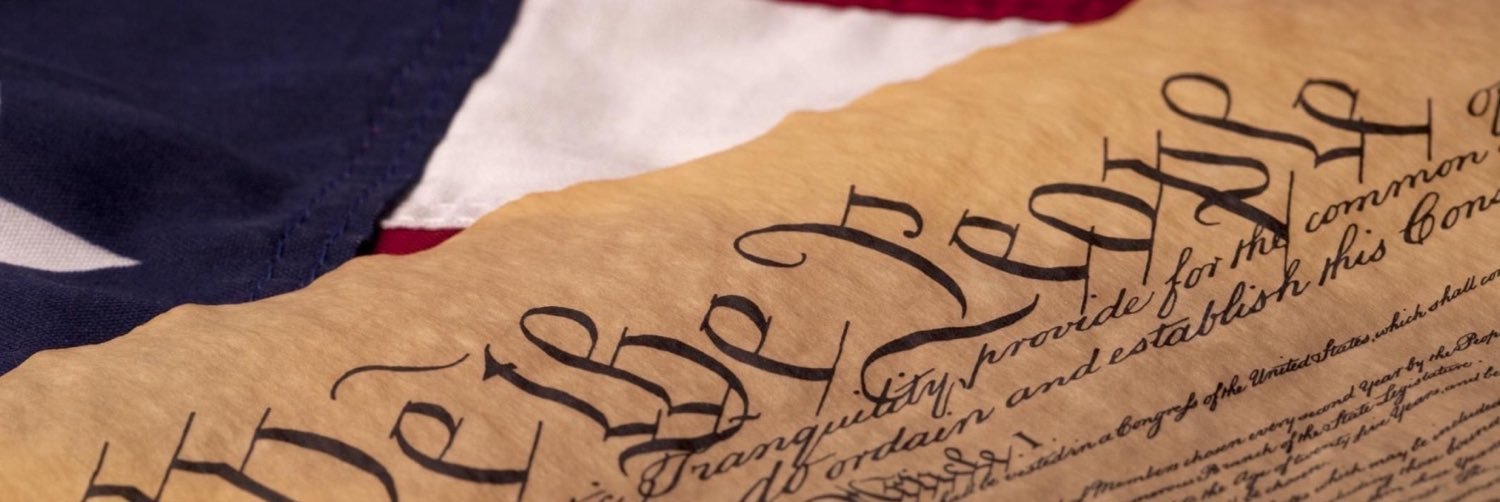 We the People
Tranquility, provide for the common
do ordain and establish this Cons
vested in a Congreſs of the United States, which shall con
Members chosen every second Year by the Peop
Branch of the State Legislature.
the Age of twenty five Years, and be
which may be included